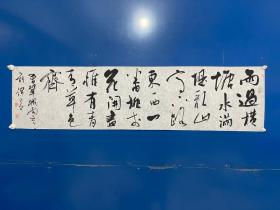 雨過橫
塘水滿
堤亂山
高下路
東西一
番桃李
花開盡
惟有青
青草色
齊
曾鞏城南